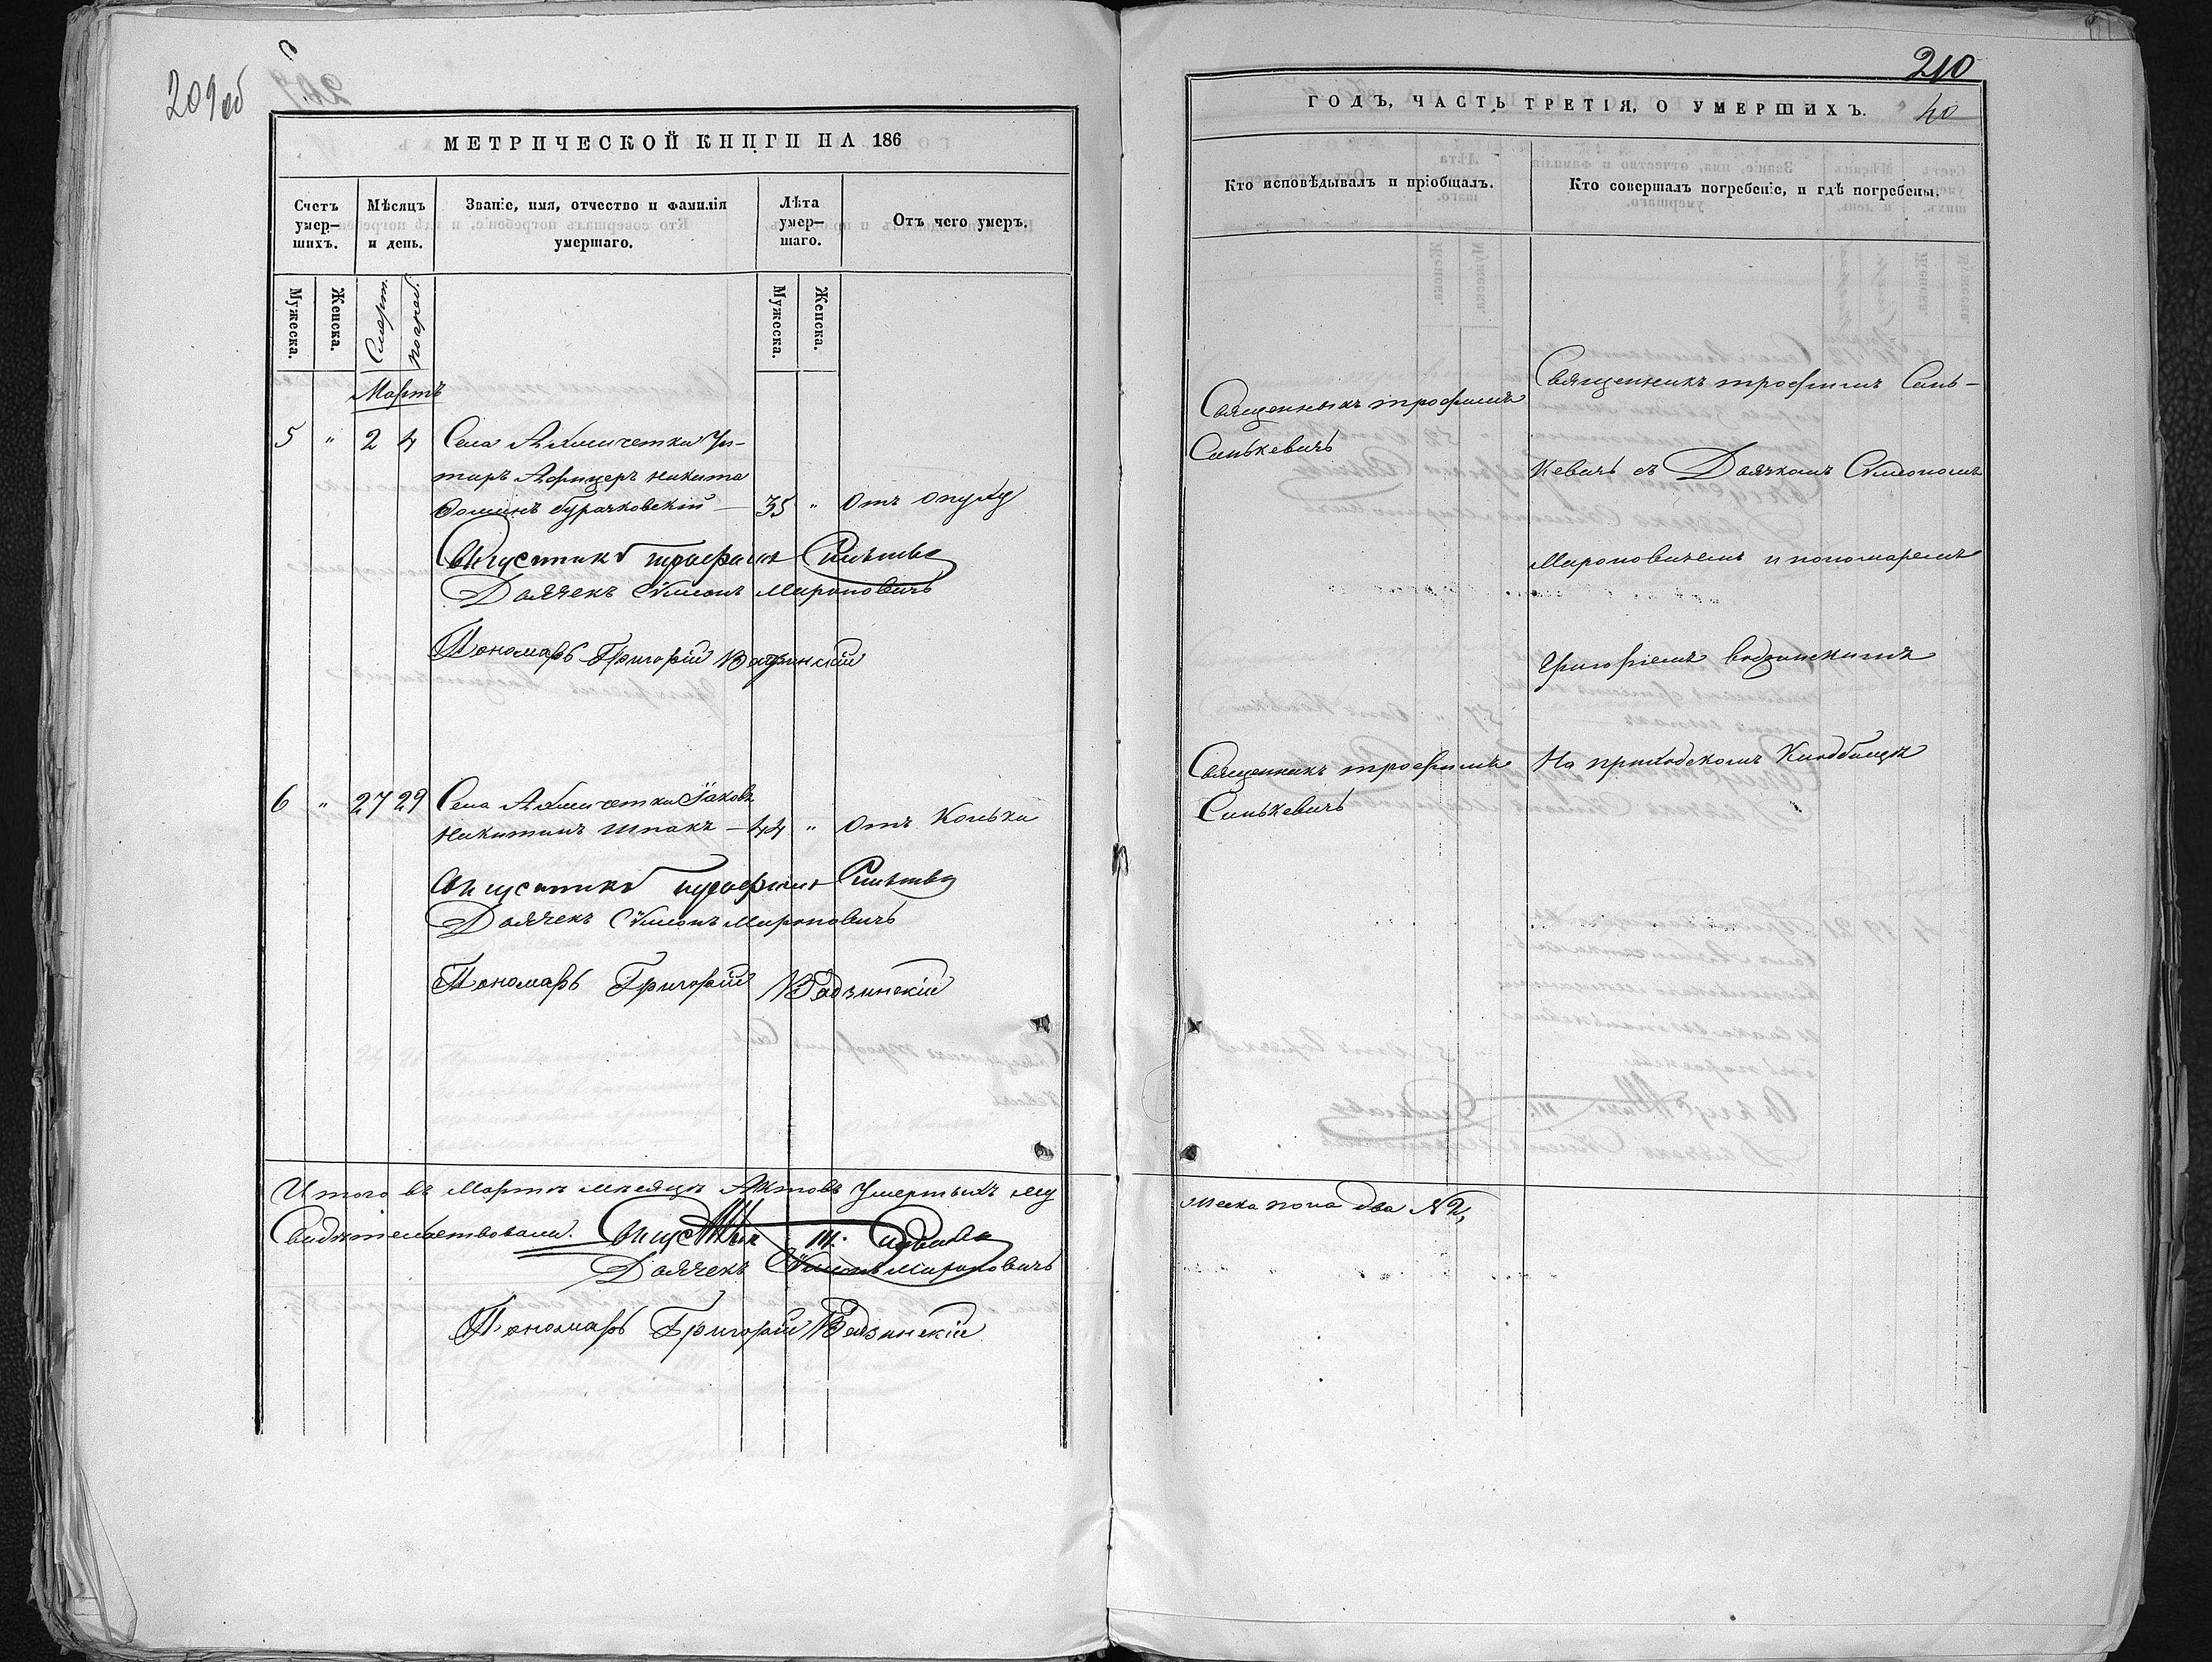 209 об
МЕТРИЧЕСКОЙ КНИГИ НА 186
Счетъ умер-шихъ.
Мѣсяцъ и день.
Званіе, имя, отчество и фамилія умершаго.
Лѣта умер-шаго.
Отъ чего умеръ.
Мужеска.
Женска.
Смерт.
погреб.
Мужеска.
Женска.
Мартъ
5 " 2 4 Села Акмечетки Ун-
теръ Афицеръ Никита
Фоминъ Бурачковскій — 35 " Отъ опуху
Священникъ Трофимъ Синькевичъ
Дьячекъ Сѵмеонъ Мироновичъ
Пономарь Григорій Вадзинскій
6 " 27 29 Села Акмечетки Іаковъ
Никитинъ Шпакъ — 44 " Отъ Колька
Священникъ Трофимъ Синькевичъ
Дьячекъ Сѵмеонъ Мироновичъ
Пономарь Григорій Вадзинскій
Итого въ Мартѣ мѣсяцѣ Актовъ Умершихъ му
Свидѣтельствовали.
Дьячекъ Сѵмеонъ Мироновичъ
Пономарь Григорій Вадзинскій
210
40
ГОДЪ, ЧАСТЬ ТРЕТІЯ, О УМЕРШИХЪ.
Кто исповѣдывалъ и пріобщалъ.
Кто совершалъ погребеніе, и гдѣ погребены.
Священникъ Трофимъ
Синькевичъ
Священникъ Трофимъ Синь-
кевичь съ Дьячкомъ Сѵмеономъ
Мироновичемъ и пономаремъ
Григоріемъ Вадзинскимъ
Священникъ Трофимъ
Синькевичъ
На приходскомъ Кладбищѣ
жеска пола два № 2,